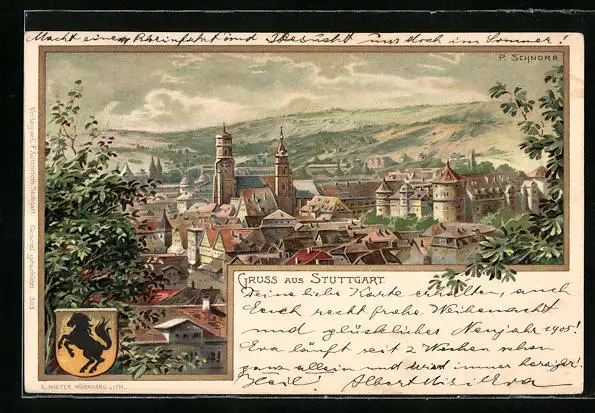 Macht eine Rheinfahrt und Besucht uns doch im Sommer!
P. SCHNORR
GRUSS AUS STUTTGART
Deine liebe Karte erhalten, auch
Euch recht frohe Weihnacht
und glückliches Neujahr 1905!
Eva läuft seit 2 Wochen schon
ganz allein und wird immer herziger!
Heil! Albert Misi Eva
Verlag von C. F. Autenrieth Stuttgart Gesetzl. geschützt 303
E. NISTER NÜRNBERG LITH.